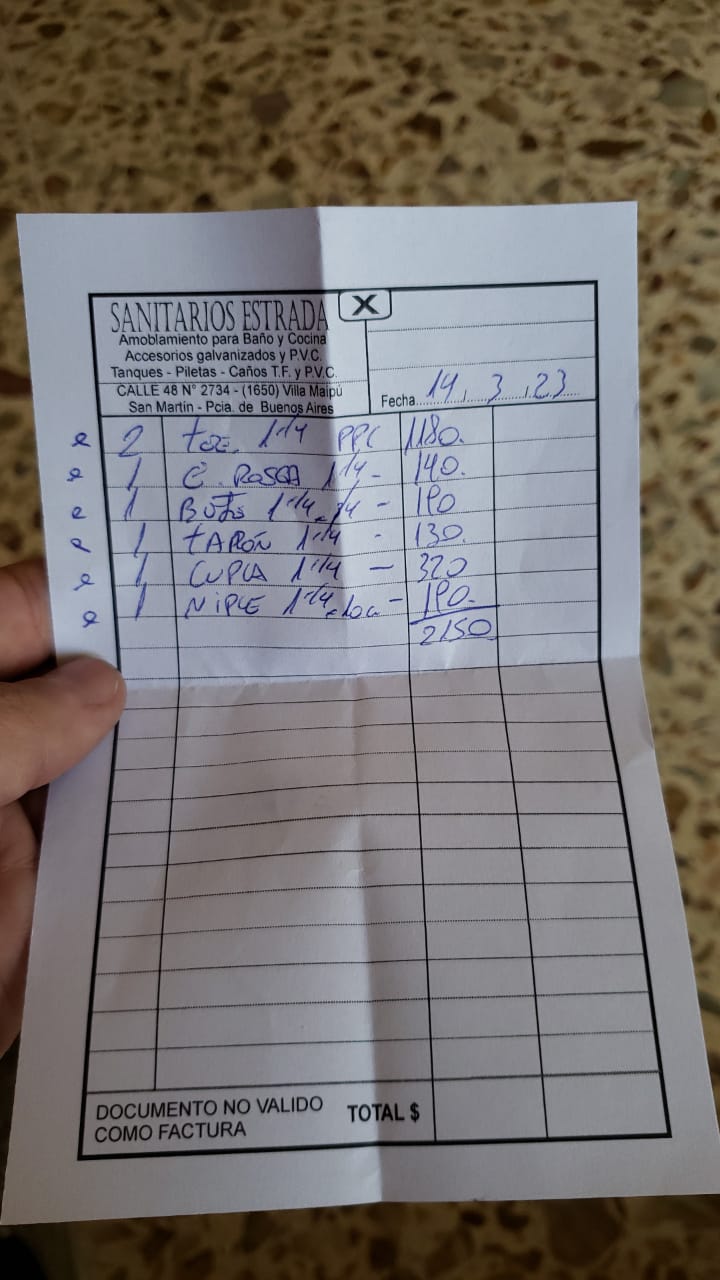 SANITARIOS ESTRADA
X
Amoblamiento para Baño y Cocina
Accesorios galvanizados y P.V.C.
Tanques - Piletas - Caños T.F. y P.V.C.
CALLE 48 N° 2734 - (1650) Villa Maipú
San Martin - Pcia. de Buenos Aires
Fecha 14 3 23
2 1 1/4 PPC 1180.
1 C. ROSCA 1 1/4 - 140.
1 BUJE 1 1/4 x 3/4 - 190
1 TAPÓN 1 1/4 - 130.
1 CUPLA 1 1/4 - 320
1 NIPLE 1 1/4 x 10c - 190.
2150
DOCUMENTO NO VALIDO
COMO FACTURA
TOTAL $